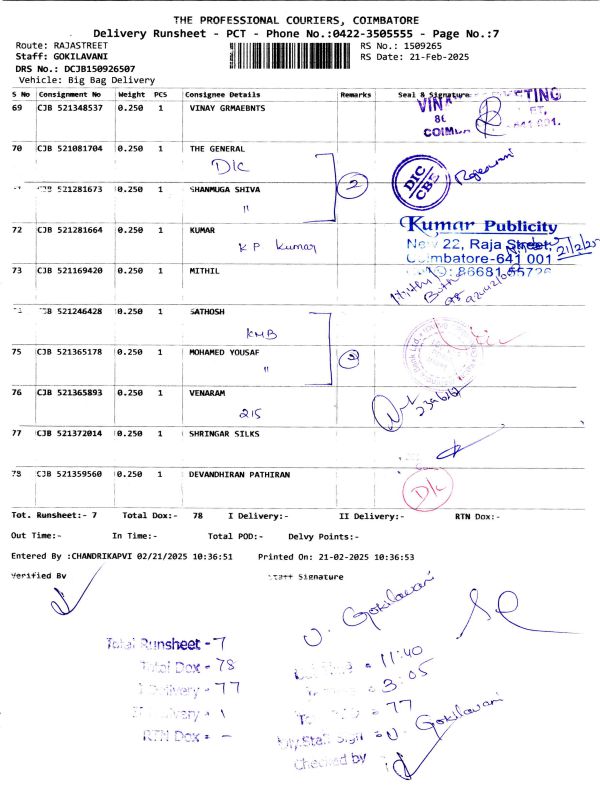 THE PROFESSIONAL COURIERS, COIMBATORE
Delivery Runsheet - PCT - Phone No.:0422-3505555 - Page No.:7
Route: RAJASTREET RS No.: 1509265
Staff: GOKILAVANI RS Date: 21-Feb-2025
DRS No.: DCJB150926507
Vehicle: Big Bag Delivery
S No Consignment No Weight PCS Consignee Details Remarks Seal & Signature
69 CJB 521348537 0.250 1 VINAY GRMAEBNTS
COIMB 641 001.
70 CJB 521081704 0.250 1 THE GENERAL
D/c
DIC CBE
2
CJB 521281673 0.250 1 SHANMUGA SHIVA
"
72 CJB 521281664 0.250 1 KUMAR
K P Kumar
Kumar Publicity
New 22, Raja Street,
Coimbatore-641 001
: 86681 55726
21/2/25
73 CJB 521169420 0.250 1 MITHIL
CJB 521246428 0.250 1 SATHOSH
KMB
75 CJB 521365178 0.250 1 MOHAMED YOUSAF
"
76 CJB 521365893 0.250 1 VENARAM
215
77 CJB 521372014 0.250 1 SHRINGAR SILKS
78 CJB 521359560 0.250 1 DEVANDHIRAN PATHIRAN
D/c
Tot. Runsheet:- 7 Total Dox:- 78 I Delivery:- II Delivery:- RTN Dox:-
Out Time:- In Time:- Total POD:- Delvy Points:-
Entered By :CHANDRIKAPVI 02/21/2025 10:36:51 Printed On: 21-02-2025 10:36:53
Verified By Staff Signature
Gokilavani
Total Runsheet - 7
= 11:40
Total Dox - 78
= 3:05
I Delivery - 77
= 77
II Delivery - 1
Dly.Staff Sign = Gokilavani
RTN Dox - -
Checked by